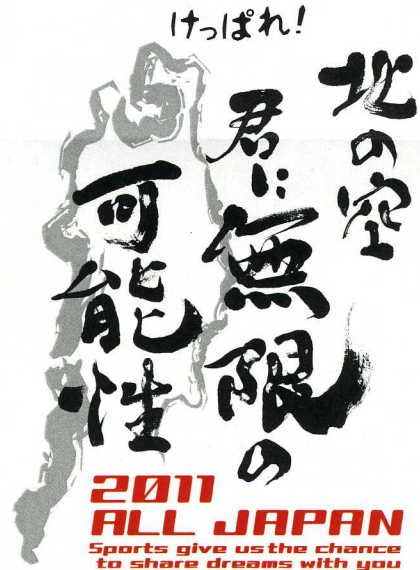 けっぱれ!
北の空
君に無限の
可能性
2011
ALL JAPAN
Sports give us the chance
to share dreams with you